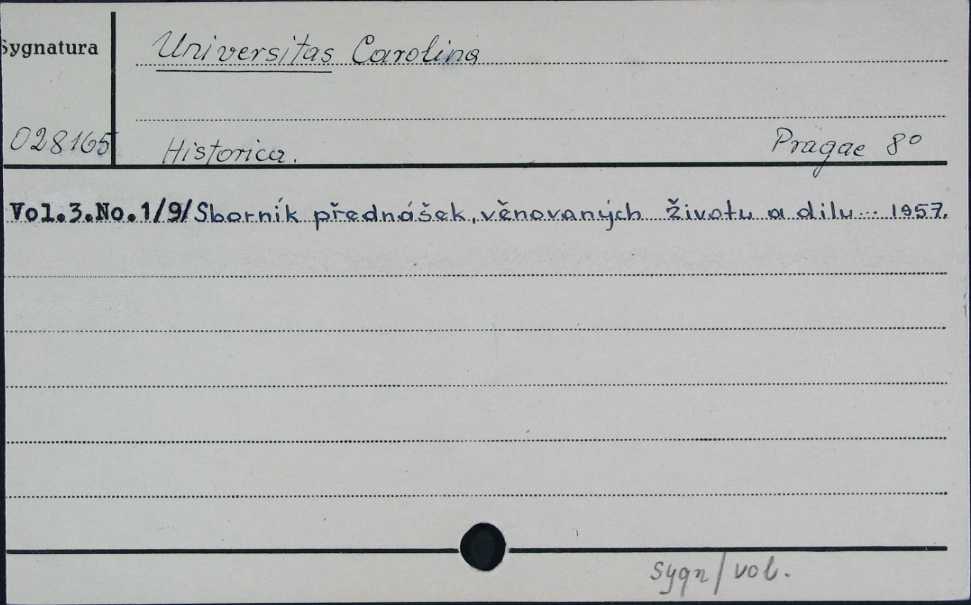 Sygnatura
Universitas Carolina
028165
Historica.
Pragae 8º
Vol.3.No.1/9/Sborník přednášek,věnovaných životu a dilu... 1957.
sygn/vol.